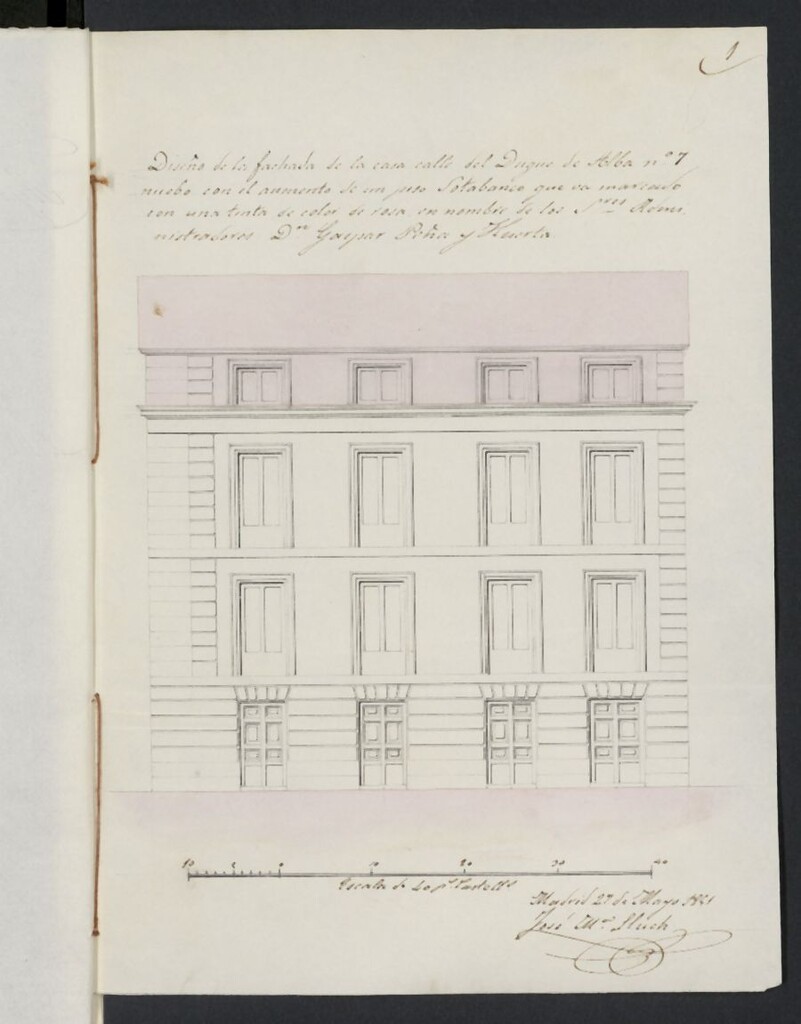 1
Diseño de la fachada de la casa calle del Duque de Alba nº 7
nuebo con el aumento de un piso Sotabanco que va marcado
con una tinta de color de rosa en nombre de los S.res Admi
nistradores Dn Gaspar Peña y Huerta
10 5 0 10 20 30 40
Escala de 40 ps Castells
Madrid 27 de Mayo 1861
José Mª Lluch